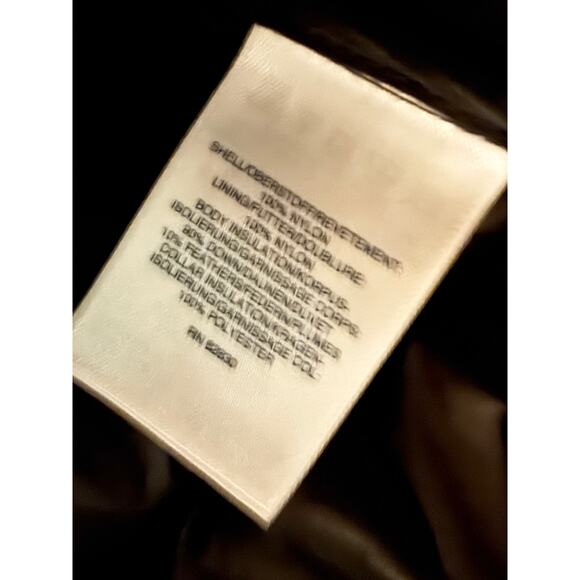 SHELL/OBERSTOFF/REVETEMENT:
100% NYLON
LINING/FUTTER/DOUBLURE:
100% NYLON
BODY INSULATION/KORPUS-
ISOLIERUNG/GARNISSAGE CORPS:
90% DOWN/DAUNEN/DUVET
10% FEATHERS/FEDERN/PLUMES
COLLAR INSULATION/KRAGEN-
ISOLIERUNG/GARNISSAGE COL:
100% POLYESTER
RN